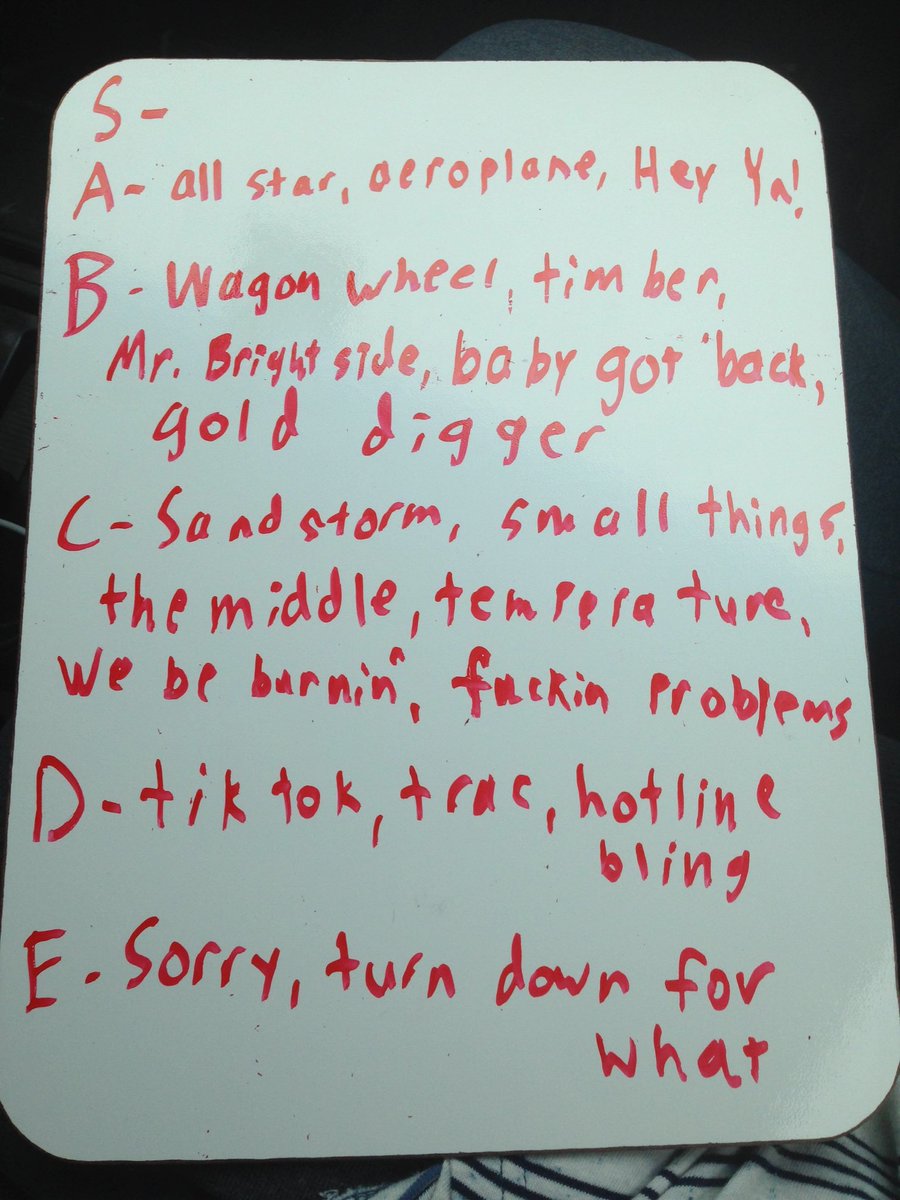 S -
A - all star, aeroplane, Hey Ya!
B - Wagon wheel, timber,
Mr. Brightside, baby got back,
gold digger
C - Sandstorm, small things,
the middle, temperature,
We be burnin', fuckin problems
D - tik tok, trac, hotline
bling
E - Sorry, turn down for
what